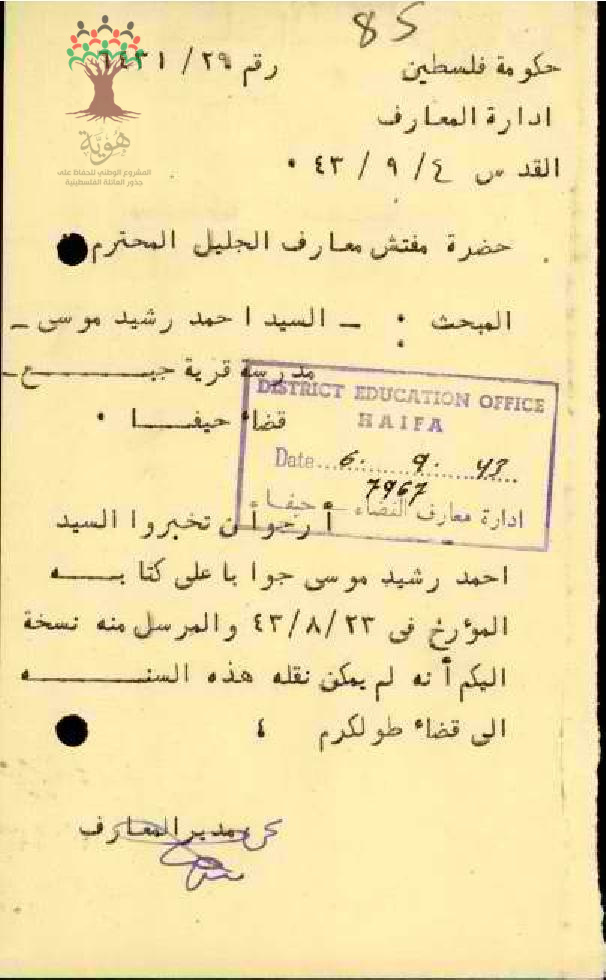 85
حكومة فلسطين
رقم ٢٩/ ٦٤٣١
ادارة المعارف
القدس ٤ / ٩ / ٤٣ ٠
هُوِيَّة
المشروع الوطني للحفاظ على
جذور العائلة الفلسطينية
حضرة مفتش معارف الجليل المحترم
المبحث : ــ السيد احمد رشيد موسى ــ
مدرسة قرية جبـــــــــع ــ
قضاء حيفــــا ٠
DISTRICT EDUCATION OFFICE
HAIFA
Date... 6. 9. 43
7967
ادارة معارف القضاء – حيفاء
أرجو أن تخبروا السيد
احمد رشيد موسى جوابا على كتابـــــه
المؤرخ في ٤٣/٨/٢٣ والمرسل منه نسخة
اليكم أنه لم يمكن نقله هذه السنـــــــــه
الى قضاء طولكرم ٤
عن مدير المعارف